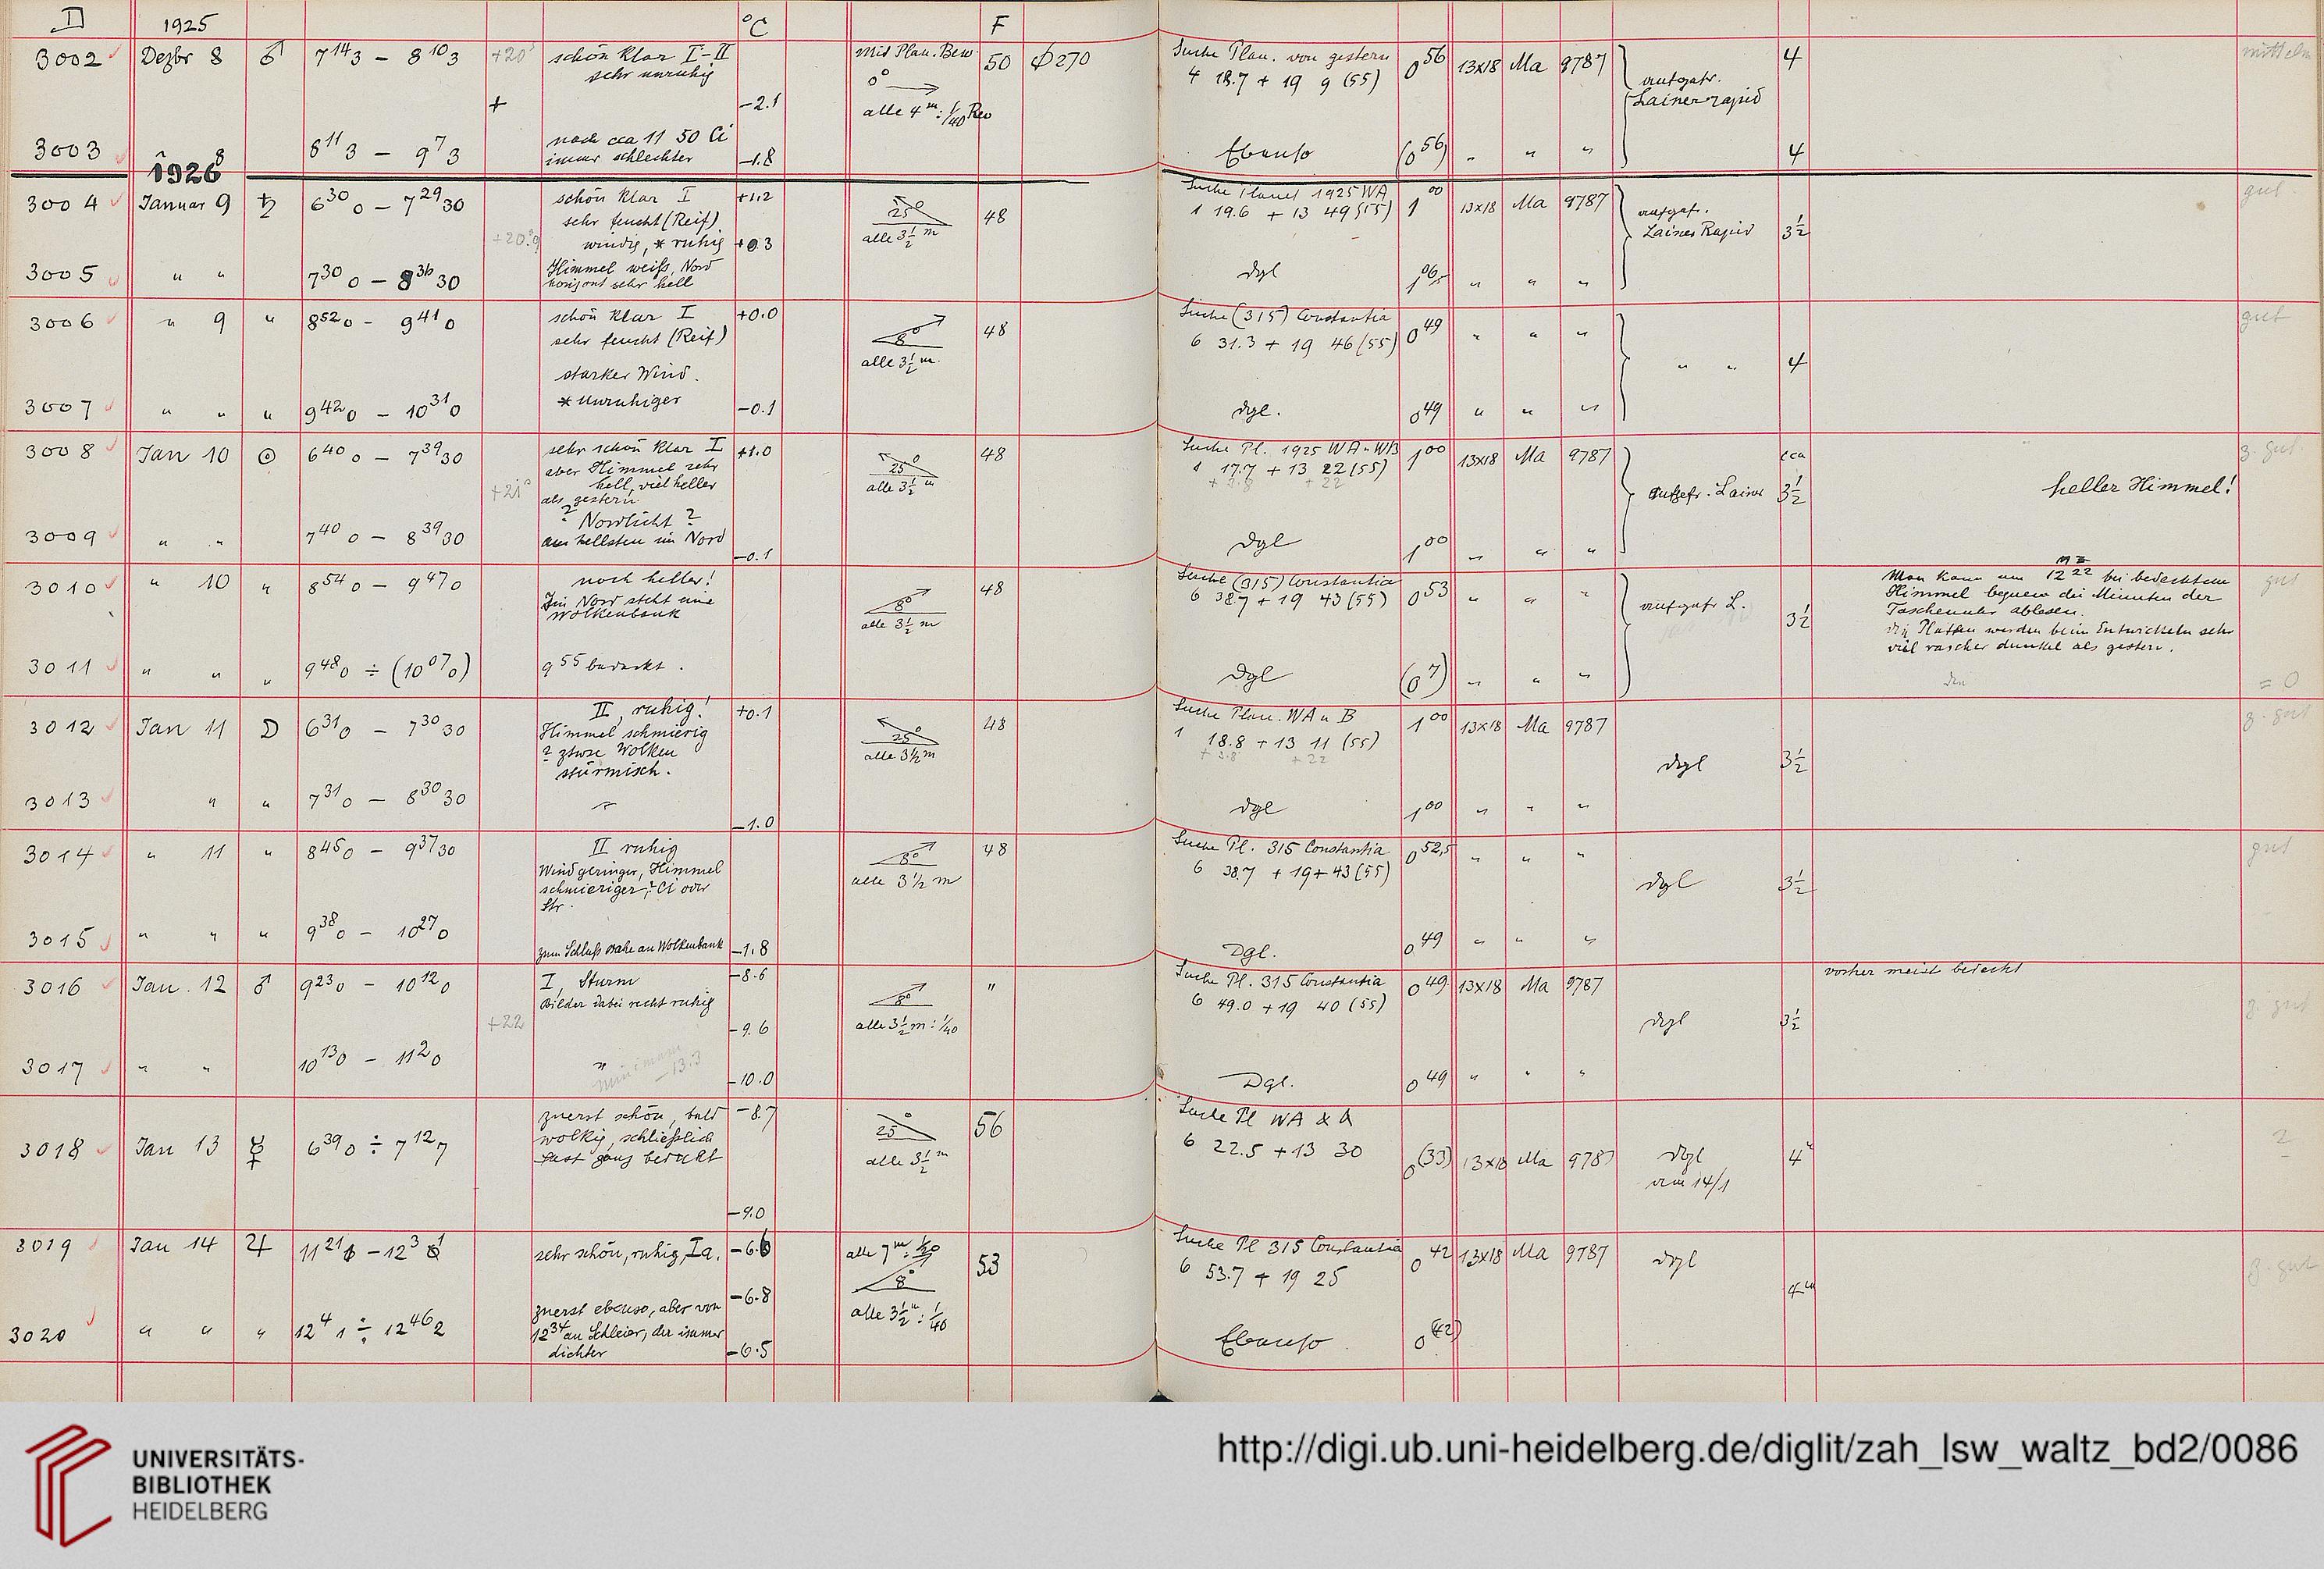 D 1925 °C F
3002 Dezbr 8 ♂ 7 14 3 – 8 10 3 +20° schön klar I–II 50 ϕ270 Suche Plan. von gestern 0 56 13x18 Ma 9787 4 mittelm
sehr unruhig 0° 4 18.7 + 19 9 (55)
+ –2.1 alle 4 m : 1/40 Rev Lainer rapid
3003 8 8 11 3 – 9 7 3 nach cca 11 50 Ci –1.8 Ebenso (0 56) " " " 4
immer schlechter
1926
3004 Januar 9 ♄ 6 30 0 – 7 29 30 schön klar I +1.2 25° 48 Suche Planet 1925 WA 1 00 13x18 Ma 9787 gut
sehr feucht (Reif) alle 3 1/2 m 1 19.6 + 13 49 (55) Lainer Rapid 3 1/2
windig, * ruhig +0.3
3005 " " 7 30 0 – 8 36 30 Himmel weiß, Nord dgl 1 06,5 " " "
horizont sehr hell
3006 " 9 " 8 52 0 – 9 41 0 schön klar I +0.0 8° 48 Suche (315) Constantia 0 49 " " " gut
sehr feucht (Reif) alle 3 1/2 m. 6 31.3 + 19 46 (55)
starker Wind. " " 4
3007 " " " 9 42 0 – 10 31 0 * unruhiger –0.1 dgl. 0 49 " " "
3008 Jan 10 ☉ 6 40 0 – 7 39 30 sehr schön klar I +1.0 25° 48 Suche Pl. 1925 WA u WB 1 00 13x18 Ma 9787 cca z. gut
aber Himmel sehr alle 3 1/2 m 1 17.7 + 13 22 (55)
+21° hell, viel heller + 22 aufgefr. Lainer 3 1/2 heller Himmel!
als gestern
? Nordlicht ?
3009 " " 7 40 0 – 8 39 30 am hellsten im Nord –0.1 dgl 1 00 " " "
3010 " 10 " 8 54 0 – 9 47 0 noch heller! 8° 48 Suche (315) Constantia 0 53 " " " gut
Im Nord steht eine 6 38.7 + 19 43 (55) 3 1/2
Wolkenbank alle 3 1/2 m
Man kann um 12 22 bei bedecktem
Himmel bequem die Minuten der
Taschenuhr ablesen.
Die Platten werden beim Entwickeln sehr
viel rascher dunkel als gestern.
3011 " " " 9 48 0 ÷ (10 07 0) 9 55 bedeckt. dgl (0 7) " " " = 0
3012 Jan 11 ☽ 6 31 0 – 7 30 30 II, ruhig! +0.1 25° 48 Suche Plan. WA u B 1 00 13x18 Ma 9787 z. gut
Himmel schmierig alle 3 1/2 m 1 18.8 + 13 11 (55)
Wolken + 3.8 + 22 dgl 3 1/2
stürmisch.
3013 " " 7 31 0 – 8 30 30 –1.0 dgl 1 00 " " "
3014 " 11 " 8 45 0 – 9 37 30 II ruhig 8° 48 Suche Pl. 315 Constantia 0 52,5 " " " gut
Wind geringer, Himmel alle 3 1/2 m 6 38.7 + 19 + 43 (55)
schmieriger, ? Ci oder dgl 3 1/2
Str.
3015 " " " 9 38 0 – 10 27 0 zum Schluß nahe an Wolkenbank –1.8 Dgl. 0 49 " " "
3016 Jan. 12 ♂ 9 23 0 – 10 12 0 I, Sturm –8.6 8° " Suche Pl. 315 Constantia 0 49 13x18 Ma 9787 vorher meist bedeckt
Bilder dabei recht ruhig 6 49.0 + 19 40 (55) z. gut
+22 –9.6 alle 3 1/2 m : 1/40 dgl 3 1/2
3017 " " 10 13 0 – 11 2 0 " Minimum –13.3 –10.0 Dgl. 0 49 " " "
3018 Jan 13 ☿ 6 39 0 ÷ 7 12 7 zuerst schön, bald –8.7 25° 56 Suche Pl WA & A
wolkig, schließlich 6 22.5 + 13 30 0 (33) 13x18 Ma 9787 dgl 4 2
fast ganz bedeckt alle 3 1/2 m am 14/1
–9.0
3019 Jan 14 ♃ 11 21 – 12 3 1 sehr schön, ruhig, Ia. –6.6 alle 7 m : 1/20 53 Suche Pl 315 Constantia 0 42 13x18 Ma 9787 dgl z. gut
8° 6 53.7 + 19 25
–6.8 4
3020 " " " 12 4 1 ÷ 12 46 2 zuerst ebenso, aber von alle 3 1/2 m : 1/40 Ebenso 0 (42)
12 34 an Schleier, der immer
dichter –6.5
UNIVERSITÄTS-
BIBLIOTHEK
HEIDELBERG
http://digi.ub.uni-heidelberg.de/diglit/zah_lsw_waltz_bd2/0086